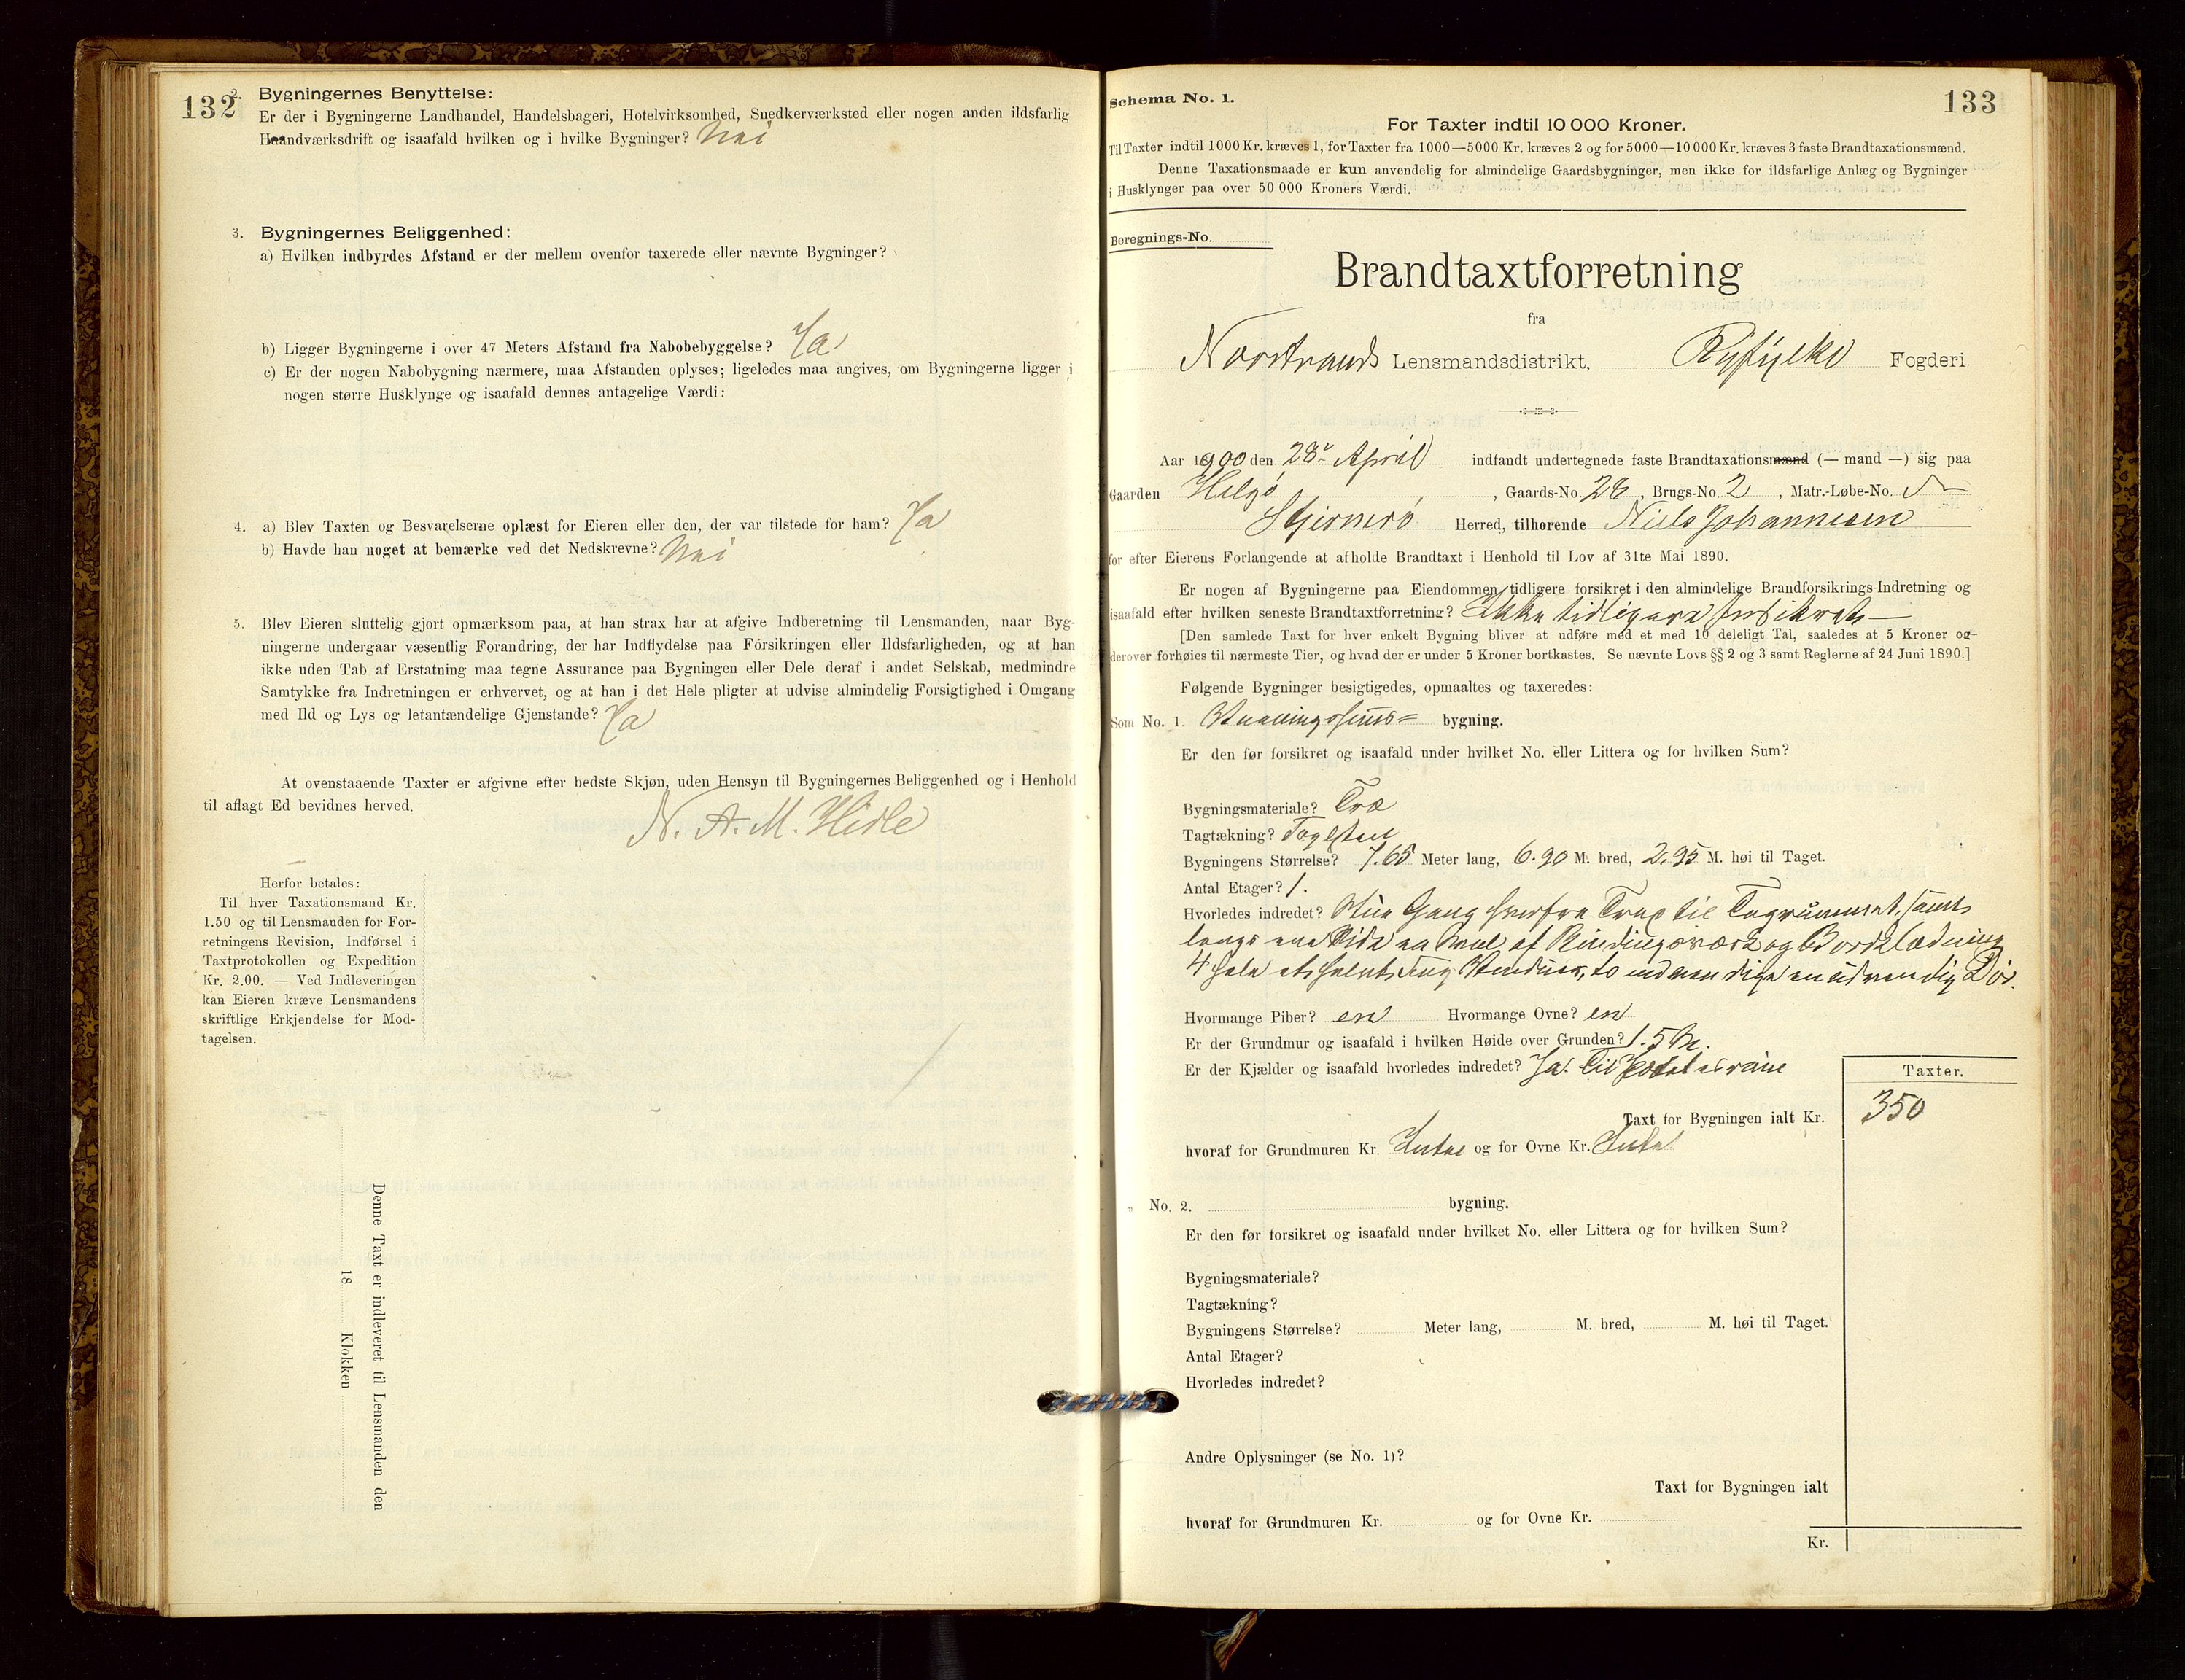 132
2. Bygningernes Benyttelse:
Er der i Bygningerne Landhandel, Handelsbageri, Hotelvirksomhed, Snedkerværksted eller nogen anden ildsfarlig
Haandværksdrift og isaafald hvilken og i hvilke Bygninger? Nei
3. Bygningernes Beliggenhed:
a) Hvilken indbyrdes Afstand er der mellem ovenfor taxerede eller nævnte Bygninger?
b) Ligger Bygningerne i over 47 Meters Afstand fra Nabobebyggelse? Ja
c) Er der nogen Nabobygning nærmere, maa Afstanden oplyses; ligeledes maa angives, om Bygningerne ligger i
nogen større Husklynge og isaafald dennes antagelige Værdi:
4. a) Blev Taxten og Besvarelserne oplæst for Eieren eller den, der var tilstede for ham? Ja
b) Havde han noget at bemærke ved det Nedskrevne? Nei
5. Blev Eieren sluttelig gjort opmærksom paa, at han strax har at afgive Indberetning til Lensmanden, naar Byg-
ningerne undergaar væsentlig Forandring, der har Indflydelse paa Forsikringen eller Ildsfarligheden, og at han
ikke uden Tab af Erstatning maa tegne Assurance paa Bygningen eller Dele deraf i andet Selskab, medmindre
Samtykke fra Indretningen er erhvervet, og at han i det Hele pligter at udvise almindelig Forsigtighed i Omgang
med Ild og Lys og letantændelige Gjenstande? Ja
At ovenstaaende Taxter er afgivne efter bedste Skjøn, uden Hensyn til Bygningernes Beliggenhed og i Henhold
til aflagt Ed bevidnes herved.
N. A. M. Hidle
Herfor betales:
Til hver Taxationsmand Kr.
1.50 og til Lensmanden for For-
retningens Revision, Indførsel i
Taxtprotokollen og Expedition
Kr. 2.00. — Ved Indleveringen
kan Eieren kræve Lensmandens
skriftlige Erkjendelse for Mod-
tagelsen.
Denne Taxt er indleveret til Lensmanden den
18 Klokken
133
Schema No. 1.
For Taxter indtil 10 000 Kroner.
Til Taxter indtil 1000 Kr. kræves 1, for Taxter fra 1000—5000 Kr. kræves 2 og for 5000—10 000 Kr. kræves 3 faste Brandtaxationsmænd.
Denne Taxationsmaade er kun anvendelig for almindelige Gaardsbygninger, men ikke for ildsfarlige Anlæg og Bygninger
i Husklynger paa over 50 000 Kroners Værdi.
Beregnings-No.
Brandtaxtforretning
fra
Norstrands Lensmandsdistrikt, Ryfylke Fogderi.
Aar 1900 den 28. April indfandt undertegnede faste Brandtaxationsmænd (— mand —) sig paa
Gaarden Helgø, Gaards-No. 28, Brugs-No. 2, Matr.-Løbe-No.
Stjernerø Herred, tilhørende Niels Johannesen
for efter Eierens Forlangende at afholde Brandtaxt i Henhold til Lov af 31te Mai 1890.
Er nogen af Bygningerne paa Eiendommen tidligere forsikret i den almindelige Brandforsikrings-Indretning og
isaafald efter hvilken seneste Brandtaxtforretning? Ikke tidligere forsikrede
[Den samlede Taxt for hver enkelt Bygning bliver at udføre med et med 10 deleligt Tal, saaledes at 5 Kroner og-
derover forhøies til nærmeste Tier, og hvad der er under 5 Kroner bortkastes. Se nævnte Lovs §§ 2 og 3 samt Reglerne af 24 Juni 1890.]
Følgende Bygninger besigtigedes, opmaaltes og taxeredes:
Som No. 1. Vaaningshuus= bygning.
Er den før forsikret og isaafald under hvilket No. eller Littera og for hvilken Sum?
Bygningsmateriale? Træ
Tagtækning? Taglsten
Bygningens Størrelse? 7.65 Meter lang, 6.90 M. bred, 2.95 M. høi til Taget.
Antal Etager? 1.
Hvorledes indredet? Stue Gang hvorfra Trap til Tagrummet, samt
langs ene Side en Sval af Bindingsværk og Bordklædning
4 hele et halvt Fag Vinduer, to indvendige en udvendig Dør.
Hvormange Piber? en Hvormange Ovne? en
Er der Grundmur og isaafald i hvilken Høide over Grunden? 1.5 M.
Er der Kjælder og isaafald hvorledes indredet? Ja. Til
Taxter.
Taxt for Bygningen ialt Kr. 350
hvoraf for Grundmuren Kr. Intet og for Ovne Kr. Intet
" No. 2. bygning.
Er den før forsikret og isaafald under hvilket No. eller Littera og for hvilken Sum?
Bygningsmateriale?
Tagtækning?
Bygningens Størrelse? Meter lang, M. bred, M. høi til Taget.
Antal Etager?
Hvorledes indredet?
Andre Oplysninger (se No. 1)?
Taxt for Bygningen ialt
hvoraf for Grundmuren Kr. og for Ovne Kr.
Kr.